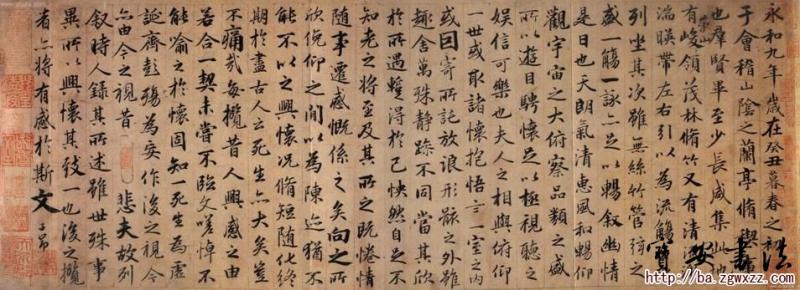 永和九年歲在癸丑暮春之初
于會稽山陰之蘭亭脩稧
也群賢畢至少長咸集此
崇山
有峻領茂林脩竹又有清
湍暎帶左右引以為流觴
列坐其次雖無絲竹管弦之
盛一觴一詠亦足以暢敘幽情
是日也天朗氣清惠風和暢仰
觀宇宙之大俯察品類之盛
所以遊目騁懷足以極視聽之
娛信可樂也夫人之相與俯仰
一世或取諸懷抱悟言一室之內
或因寄所託放浪形骸之外雖
趣舍萬殊靜躁不同當其欣
於所遇蹔得於己怏然自足不
知老之將至及其所之既惓情
隨事遷感慨係之矣向之所
欣俛仰之閒以為陳迹猶不
能不以之興懷況脩短隨化終
期於盡古人云死生亦大矣豈
不痛哉每攬昔人興感之由
若合一契未嘗不臨文嗟悼不
能喻之於懷固知一死生為虛
誕齊彭殤為妄作後之視今
亦由今之視昔 悲夫故列
敘時人錄其所述雖世殊事
異所以興懷其致一也後之攬
者亦將有感於斯文 子昂
寶安書法
http://ba.zgwxzz.com/